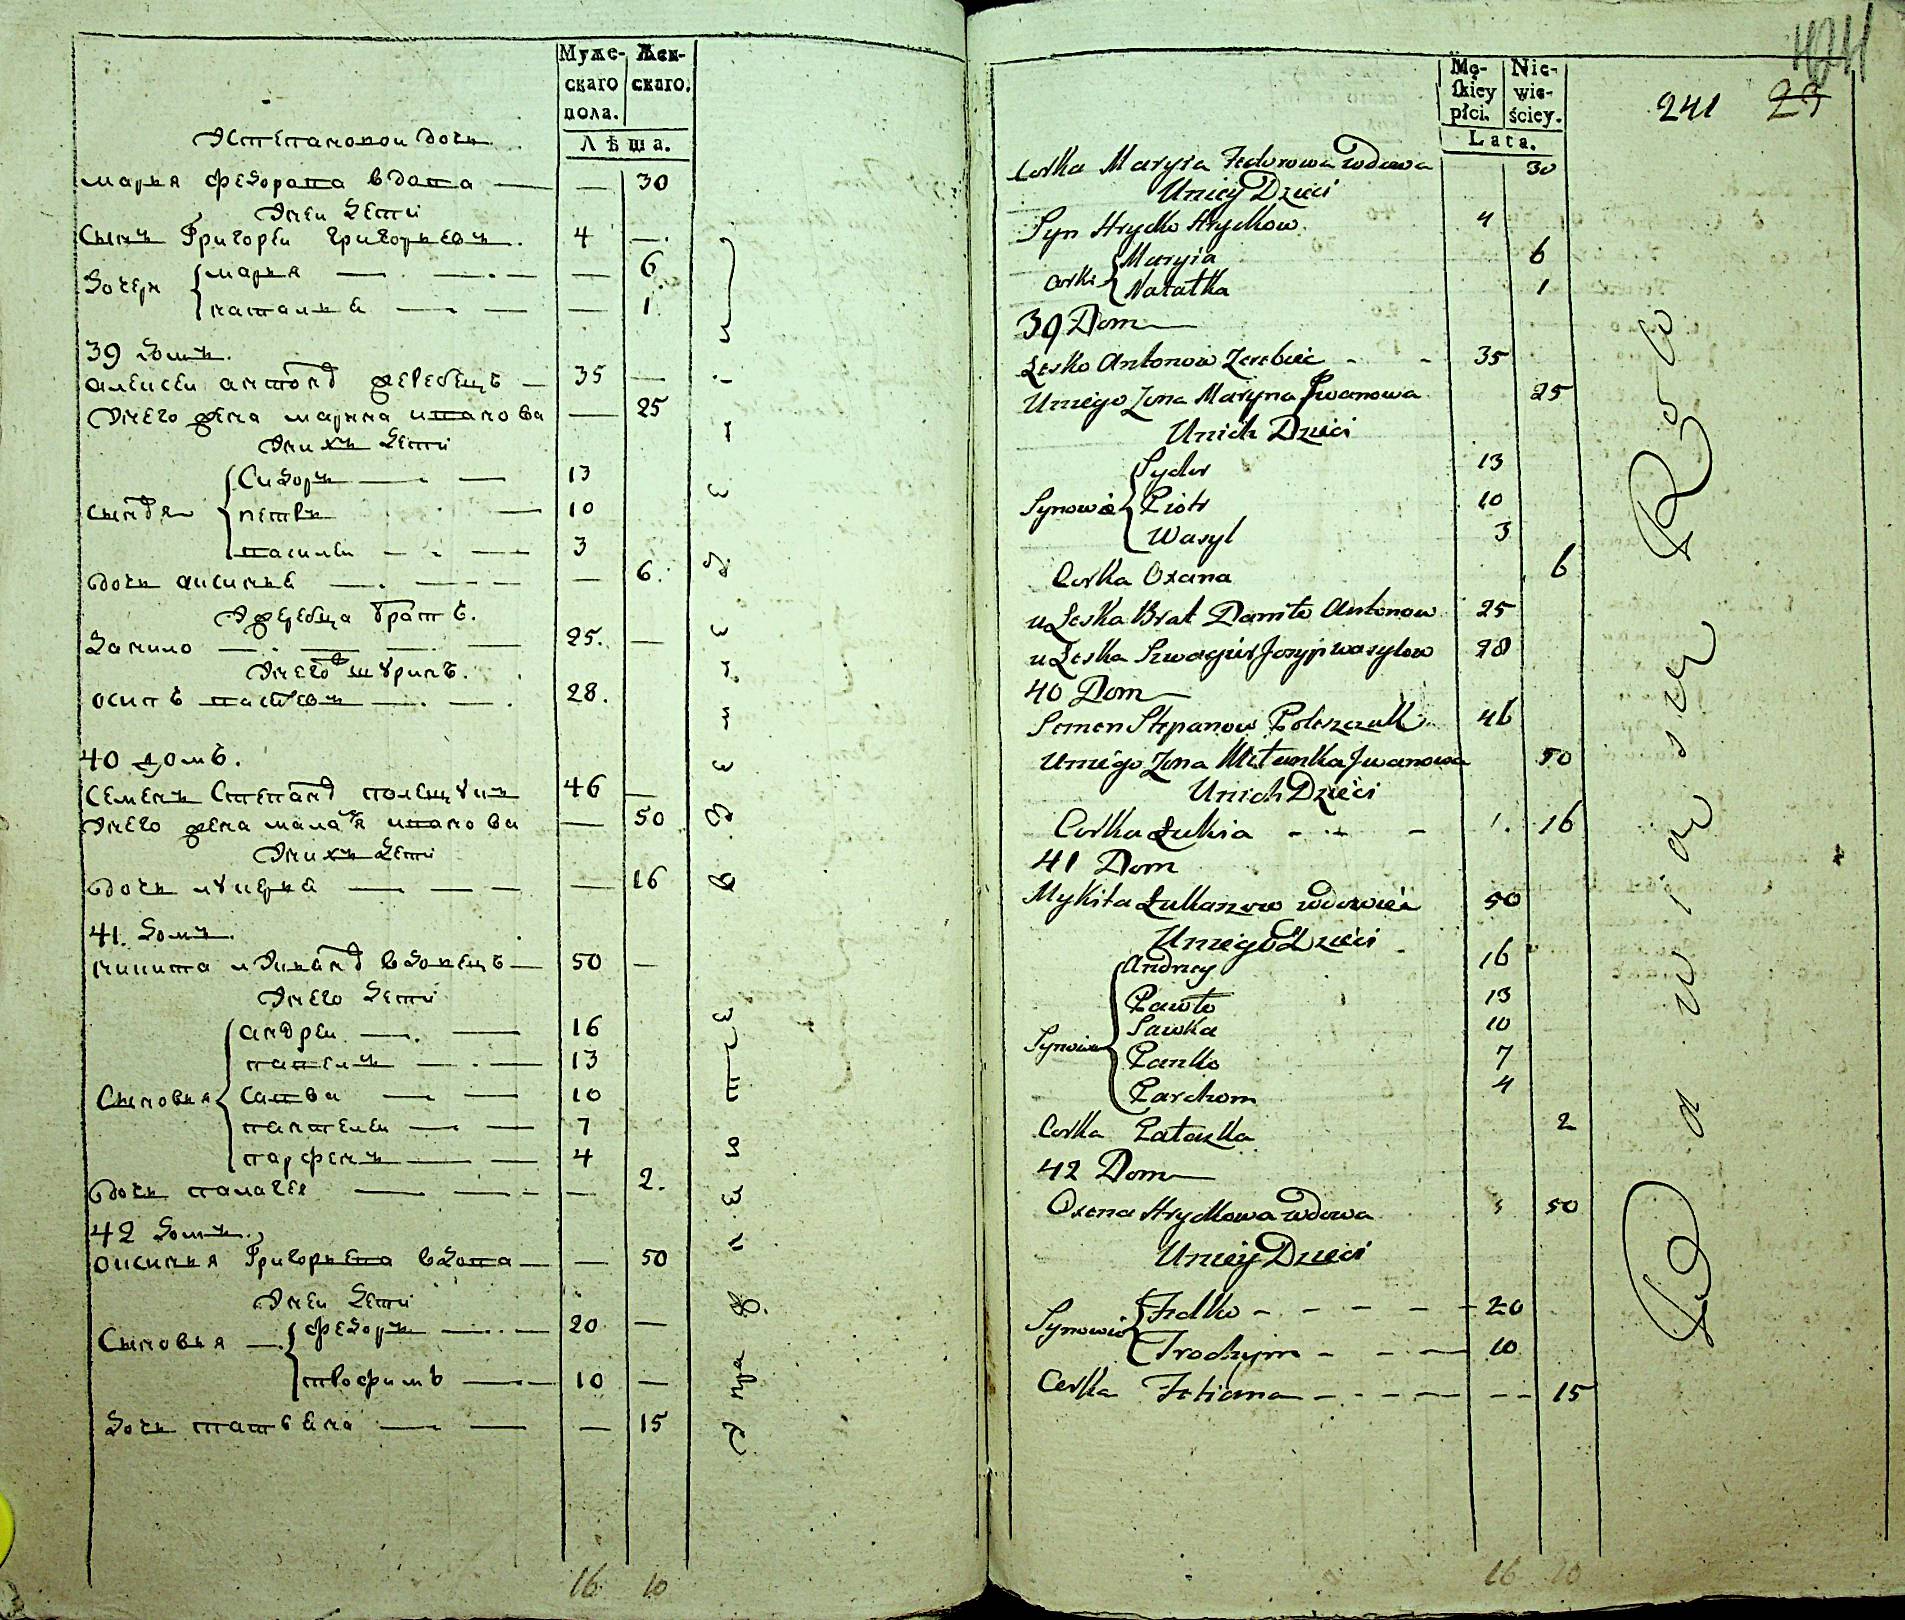 Муже-
скаго
пола.
Жен-
скаго.
Лѣта.
Устепановой дочь
марья федорова вдова — — 30
Унеи дети
Сынъ Григореи григорьевъ. 4 —
дочери { марья — — 6
наталья — — 1
39 домъ.
алексеи антоновъ жеребецъ — 35 —
Унего жена марина иванова — 25
Унихъ дети
Сидоръ — — 13
сыновья { петръ — 10
василеи — — 3
дочь аксинья — — — 6.
Ужеребца братъ.
данило — — — 25. —
Унего шуринъ.
осипъ васильевъ — 28.
40 домъ.
Семенъ Степановъ полещукъ 46 —
Унего жена маланья иванова — 50
Унихъ дети
дочь лукерья — — — 16
41. домъ.
никита лукьяновъ вдовецъ — 50 —
Унего дети
андреи — — 16
павелъ — — 13
Сыновья { савва — — 10
пантелеи — — 7
парфенъ — — 4
дочь палагея — — — 2.
42 домъ.
оксинья Григорьева вдова — — 50
Унеи дети
Сыновья — { федоръ — — 20 —
трофимъ — — 10 —
дочь татьяна — — — 15
16 10
Mę-
skiey
płci.
Nie-
wie-
ściey.
Lata.
241 23
424
Corka Maryia Fedorowa Wdowa 30
Uniey Dzieci
Syn Hrycko Hryckow 4
Corki { Maryia 6
Natałka 1
39 Dom
Lesko Antonow Zerebiec - - 35
Uniego Zona Maryna Jwanowa 25
Unich Dzieci
Sydor 13
Synowie { Piotr 10
Wasyl 3
Corka Oxana 6
u Leska Brat Daniło Antonow 25
u Leska Szwagier Jozyp wasylow 28
40 Dom
Semen Stepanow Poleszczuk 46
Uniego Zona Jwanowa 50
Unich Dzieci
Corka Łukia - - - 16
41 Dom
Mykita Łukaszow wdowiec 50
Uniego Dzieci
Andrey 16
Pawło 13
Sawka 10
Synowie { Panko 7
Parchom 4
Corka Pałaszka 2
42 Dom
Oxena Hryckowa wdowa 50
Uniey Dzieci
Synowie { Fedko - - - - - 20
Trochym - - - 10
Corka Tatiana - - - - - - 15
16 10